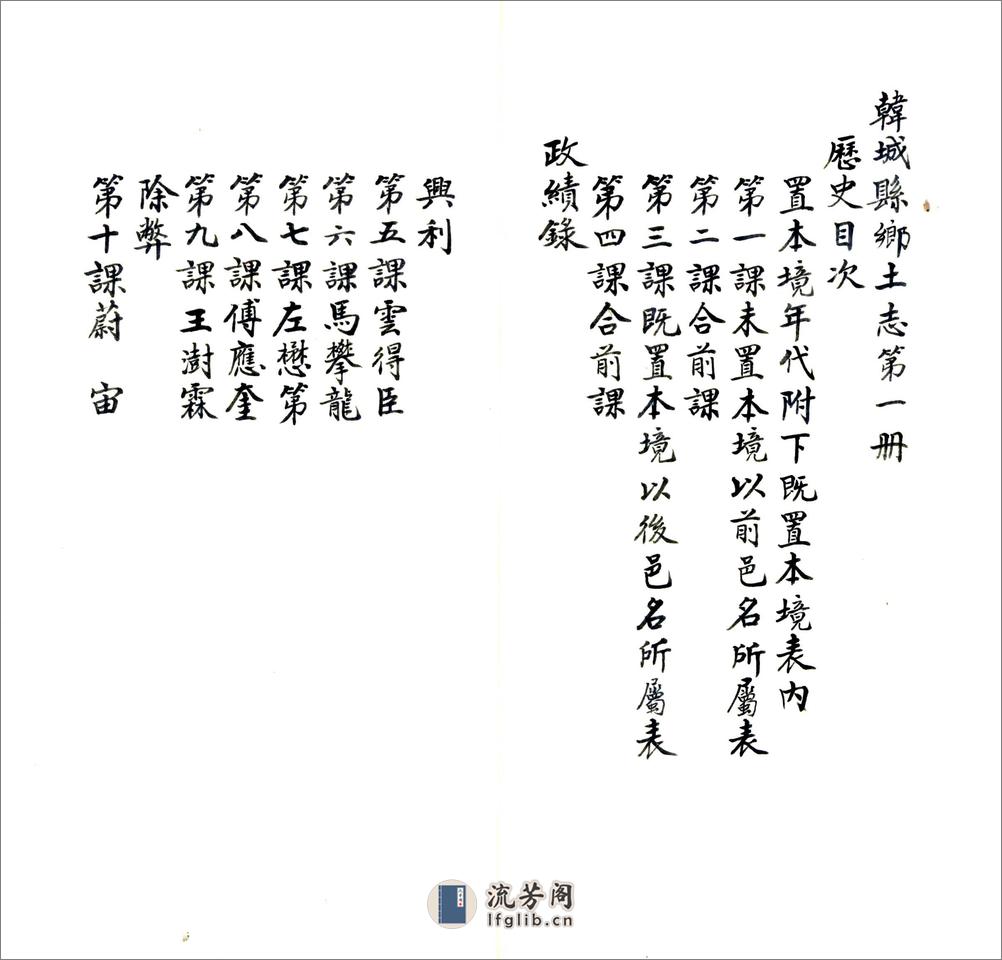 韓城縣鄉土志第一冊
歷史目次
置本境年代附下既置本境表內
第一課未置本境以前邑名所屬表
第二課合前課
第三課既置本境以後邑名所屬表
第四課合前課
政績錄
興利
第五課雲得臣
第六課馬攀龍
第七課左懋第
第八課傅應奎
第九課王澍霖
除弊
第十課蔚 宙
流芳阁
lfglib.cn